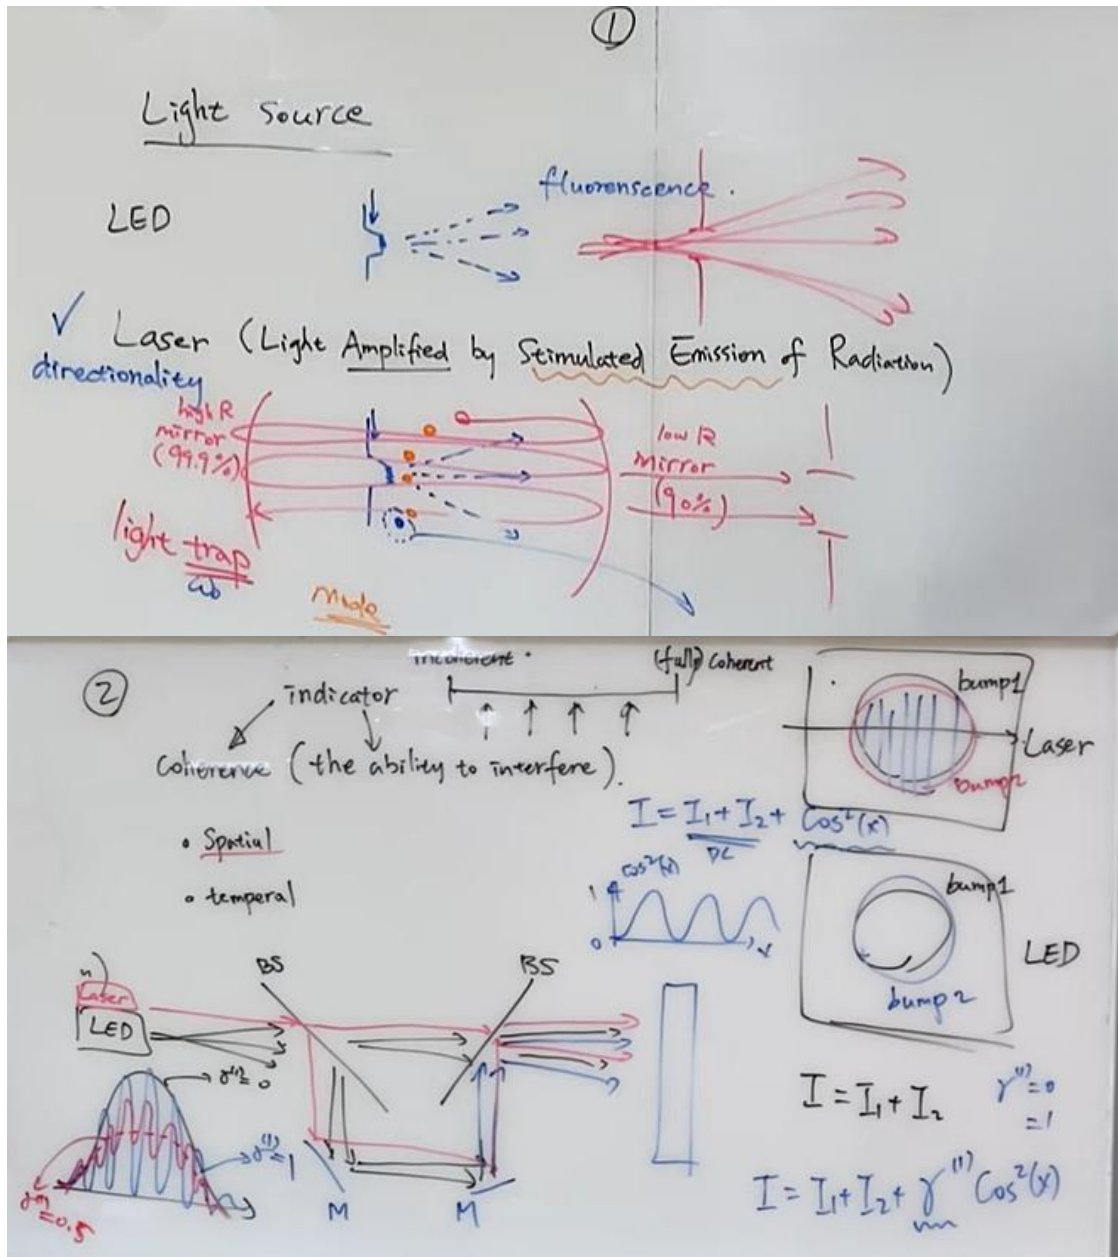 ①
Light source
LED
fluorenscence.
✓ Laser (Light Amplified by Stimulated Emission of Radiation)
directionality
high R
mirror
(99.9%)
low R
mirror
(90%)
light trap
ω₀
Mode
②
incoherent.
(fully) coherent
indicator
Coherence (the ability to interfere).
• Spatial
• temperal
bump1
Laser
bump2
I = I₁ + I₂ + Cos²(x)
DC
Cos²(x)
1
0
x
bump1
LED
bump2
BS
BS
Laser
LED
γ⁽¹⁾=0
γ⁽¹⁾=1
γ⁽¹⁾=0.5
M
M
I = I₁ + I₂
γ⁽¹⁾=0
=1
I = I₁ + I₂ + γ⁽¹⁾ Cos²(x)